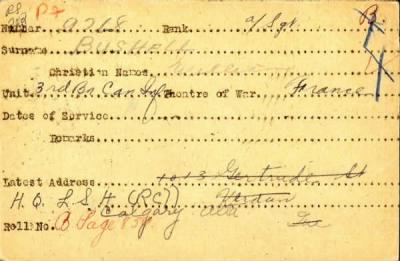 Number. 9268 Rank. A/Sgt. B.
Surname BUSHELL
Christian Names.
Unit. 3rd Bn. Can. Inf. Theatre of War. France
Dates of Service
Remarks.
Latest Address. 1013 Gertrude St
H.Q. L.S.H. (R.C.) Verdun
Calgary Alta Que
Roll No. B Page 858